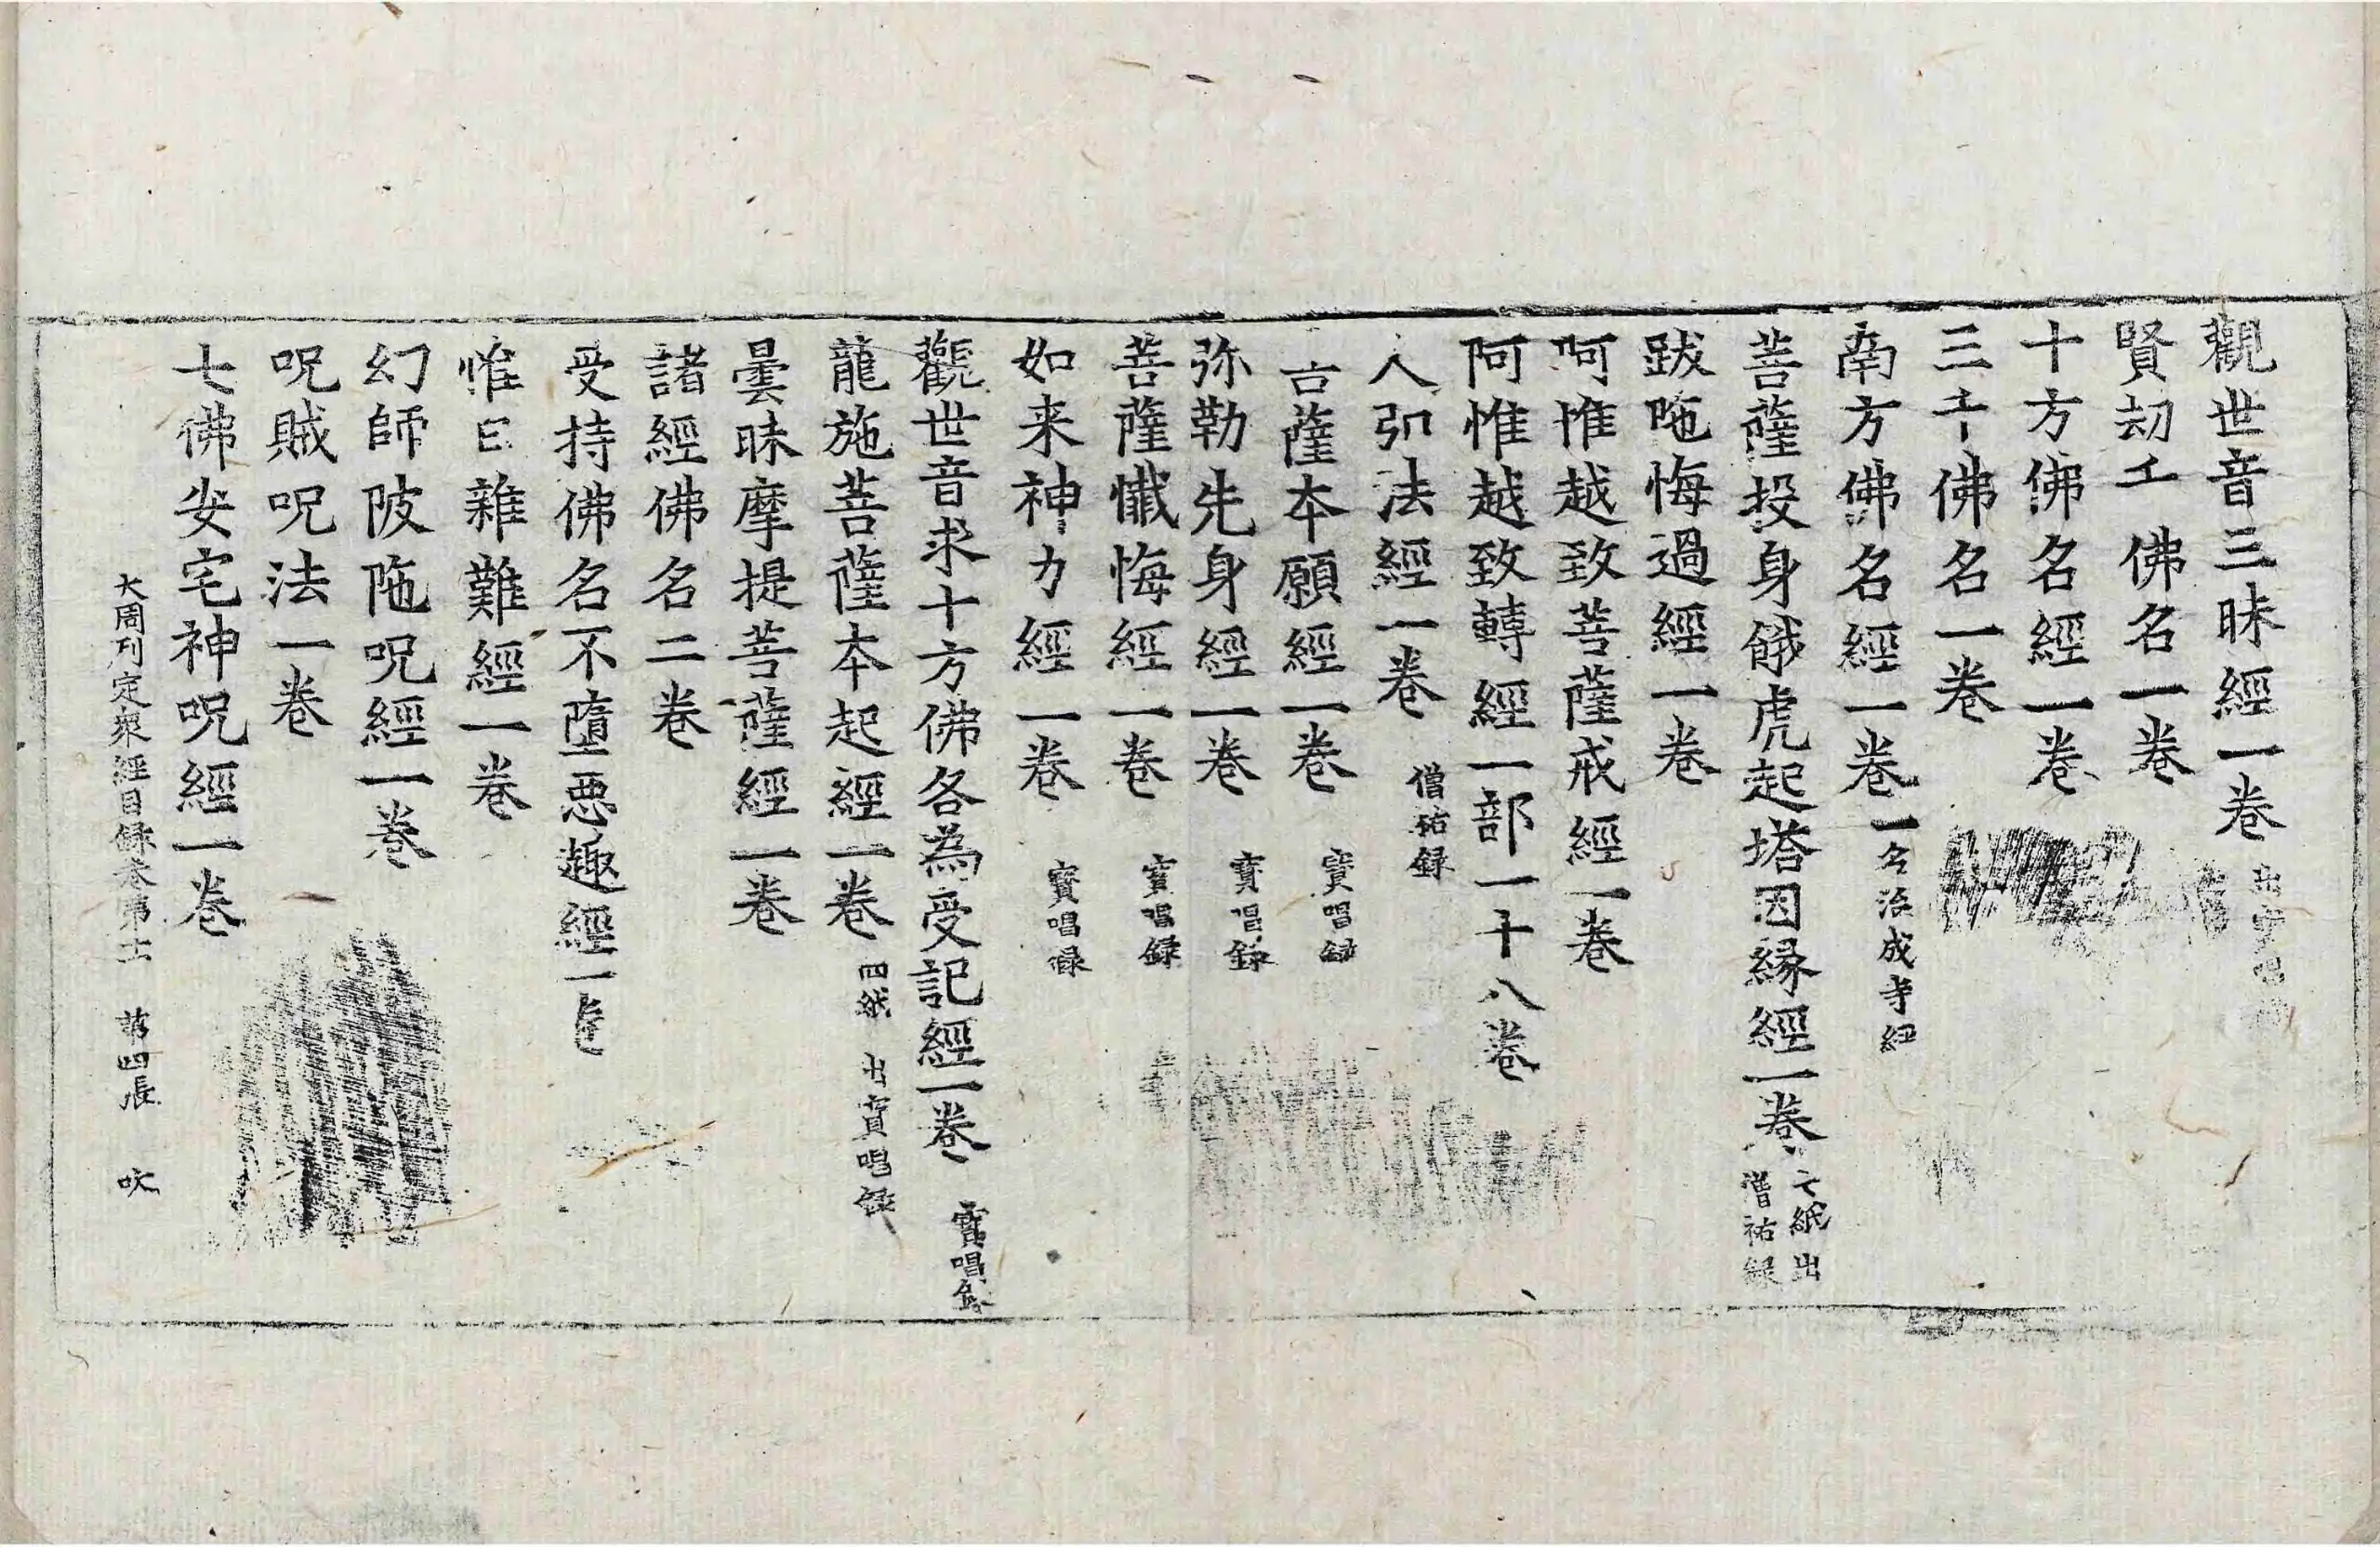 觀世音三昧經一卷 出寶唱録
賢刧千佛名一卷
十方佛名經一卷
三千佛名一卷
南方佛名經一卷 一名治成寺經
菩薩投身餓虎起塔因縁經一卷 七紙出僧祐録
跋陁悔過經一卷
阿惟越致菩薩戒經一卷
阿惟越致轉經一部一十八卷
人弘法經一卷 僧祐録
菩薩本願經一卷 寶唱録
弥勒先身經一卷 寶唱録
菩薩懺悔經一卷 寶唱録
如来神力經一卷 寶唱録
觀世音求十方佛各為受記經一卷 寶唱録
龍施菩薩本起經一卷 四紙 出寶唱録
曇昧摩提菩薩經一卷
諸經佛名二卷
受持佛名不墮惡趣經一卷
惟日雜難經一卷
幻師陂陁呪經一卷
呪賊呪法一卷
七佛安宅神呪經一卷
大周刊定衆經目録卷第十一 第四張 吹